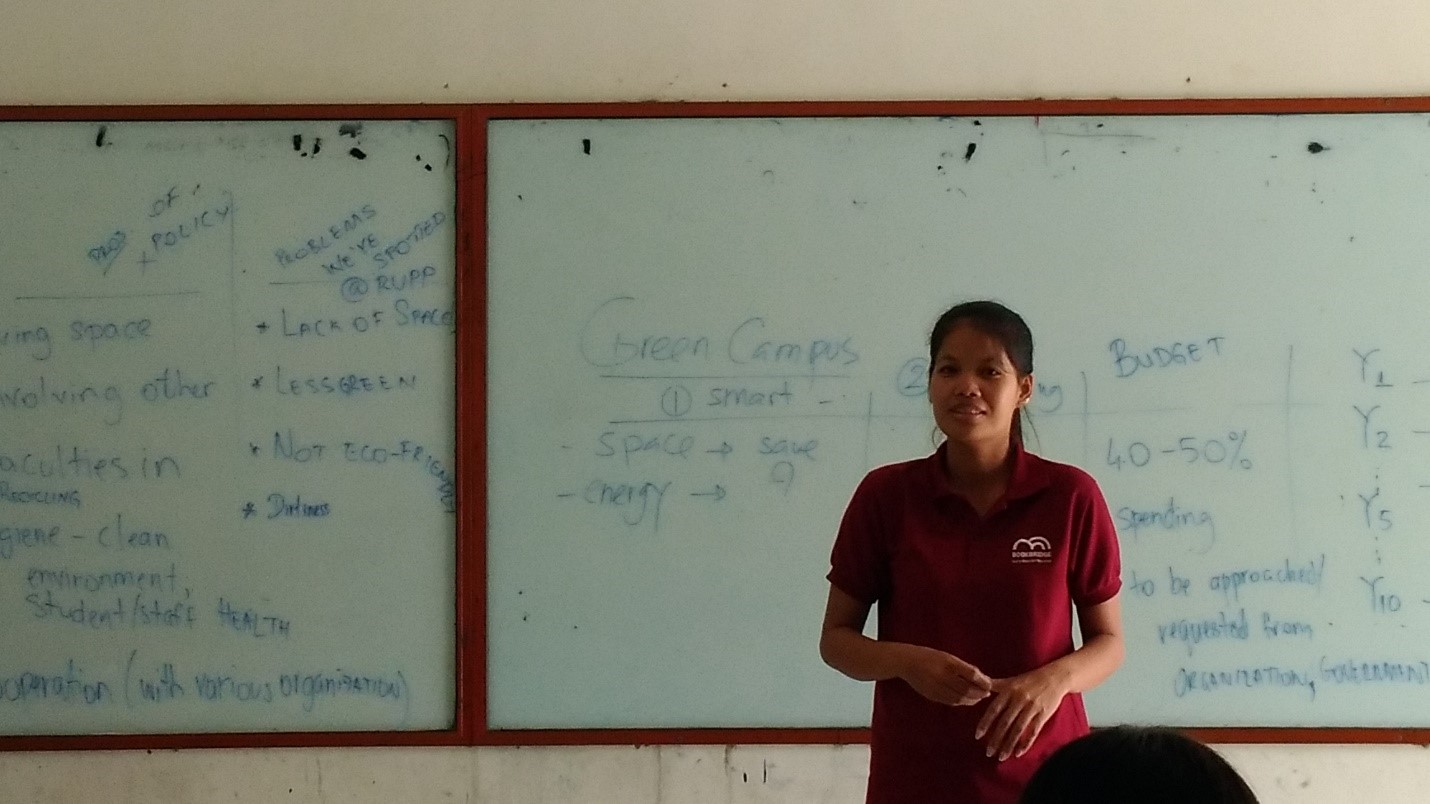 OF
POLICY
+
ving space
nvolving other
aculties in
RECYCLING
giene - clean
environment,
Student/staff HEALTH
operation (with various ORGANIZATION)
PROBLEMS
WE'VE
SPOTTED
@ RUPP
* LACK OF SPACE
* LESS GREEN
* NOT ECO-FRIENDLY
* Dirtiness
Green Campus
① smart
- space → save
- energy →
②
BUDGET
40-50%
spending
to be approached/
requested from
ORGANIZATION, GOVERNMENT
Y1 -
Y2 -
Y5
Y10 -
BOOKBRIDGE